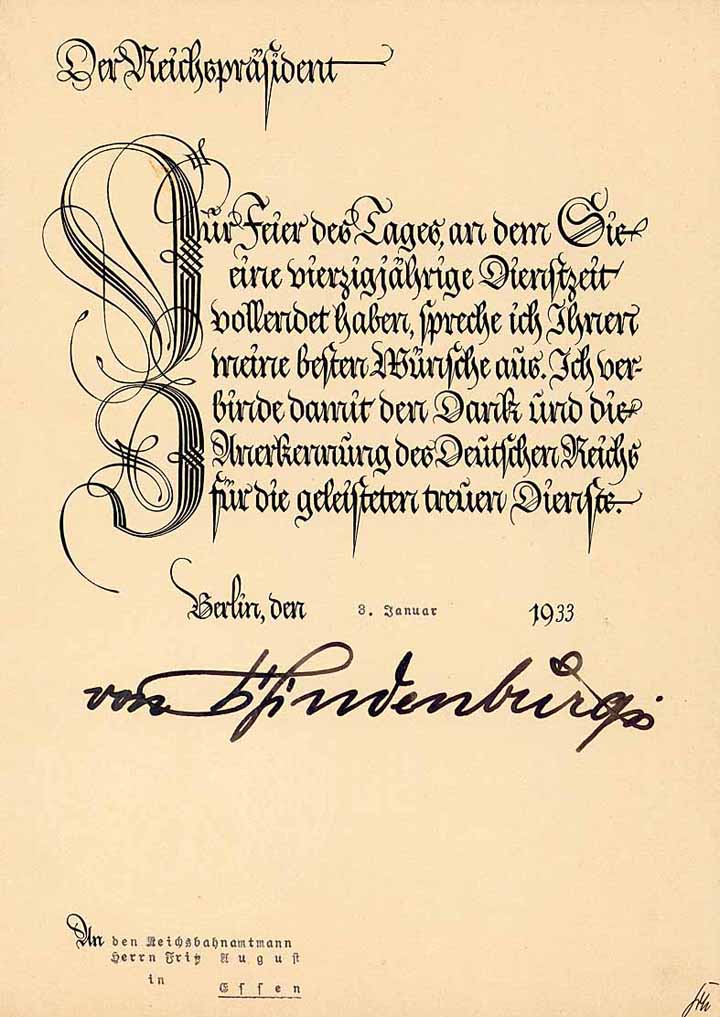 Der Reichspräsident
Zur Feier des Tages, an dem Sie
eine vierzigjährige Dienstzeit
vollendet haben, spreche ich Ihnen
meine besten Wünsche aus. Ich ver-
binde damit den Dank und die
Anerkennung des Deutschen Reichs
für die geleisteten treuen Dienste.
Berlin, den 3. Januar 1933
von Hindenburg
An den Reichsbahnamtmann
Herrn Fritz August
in
Essen